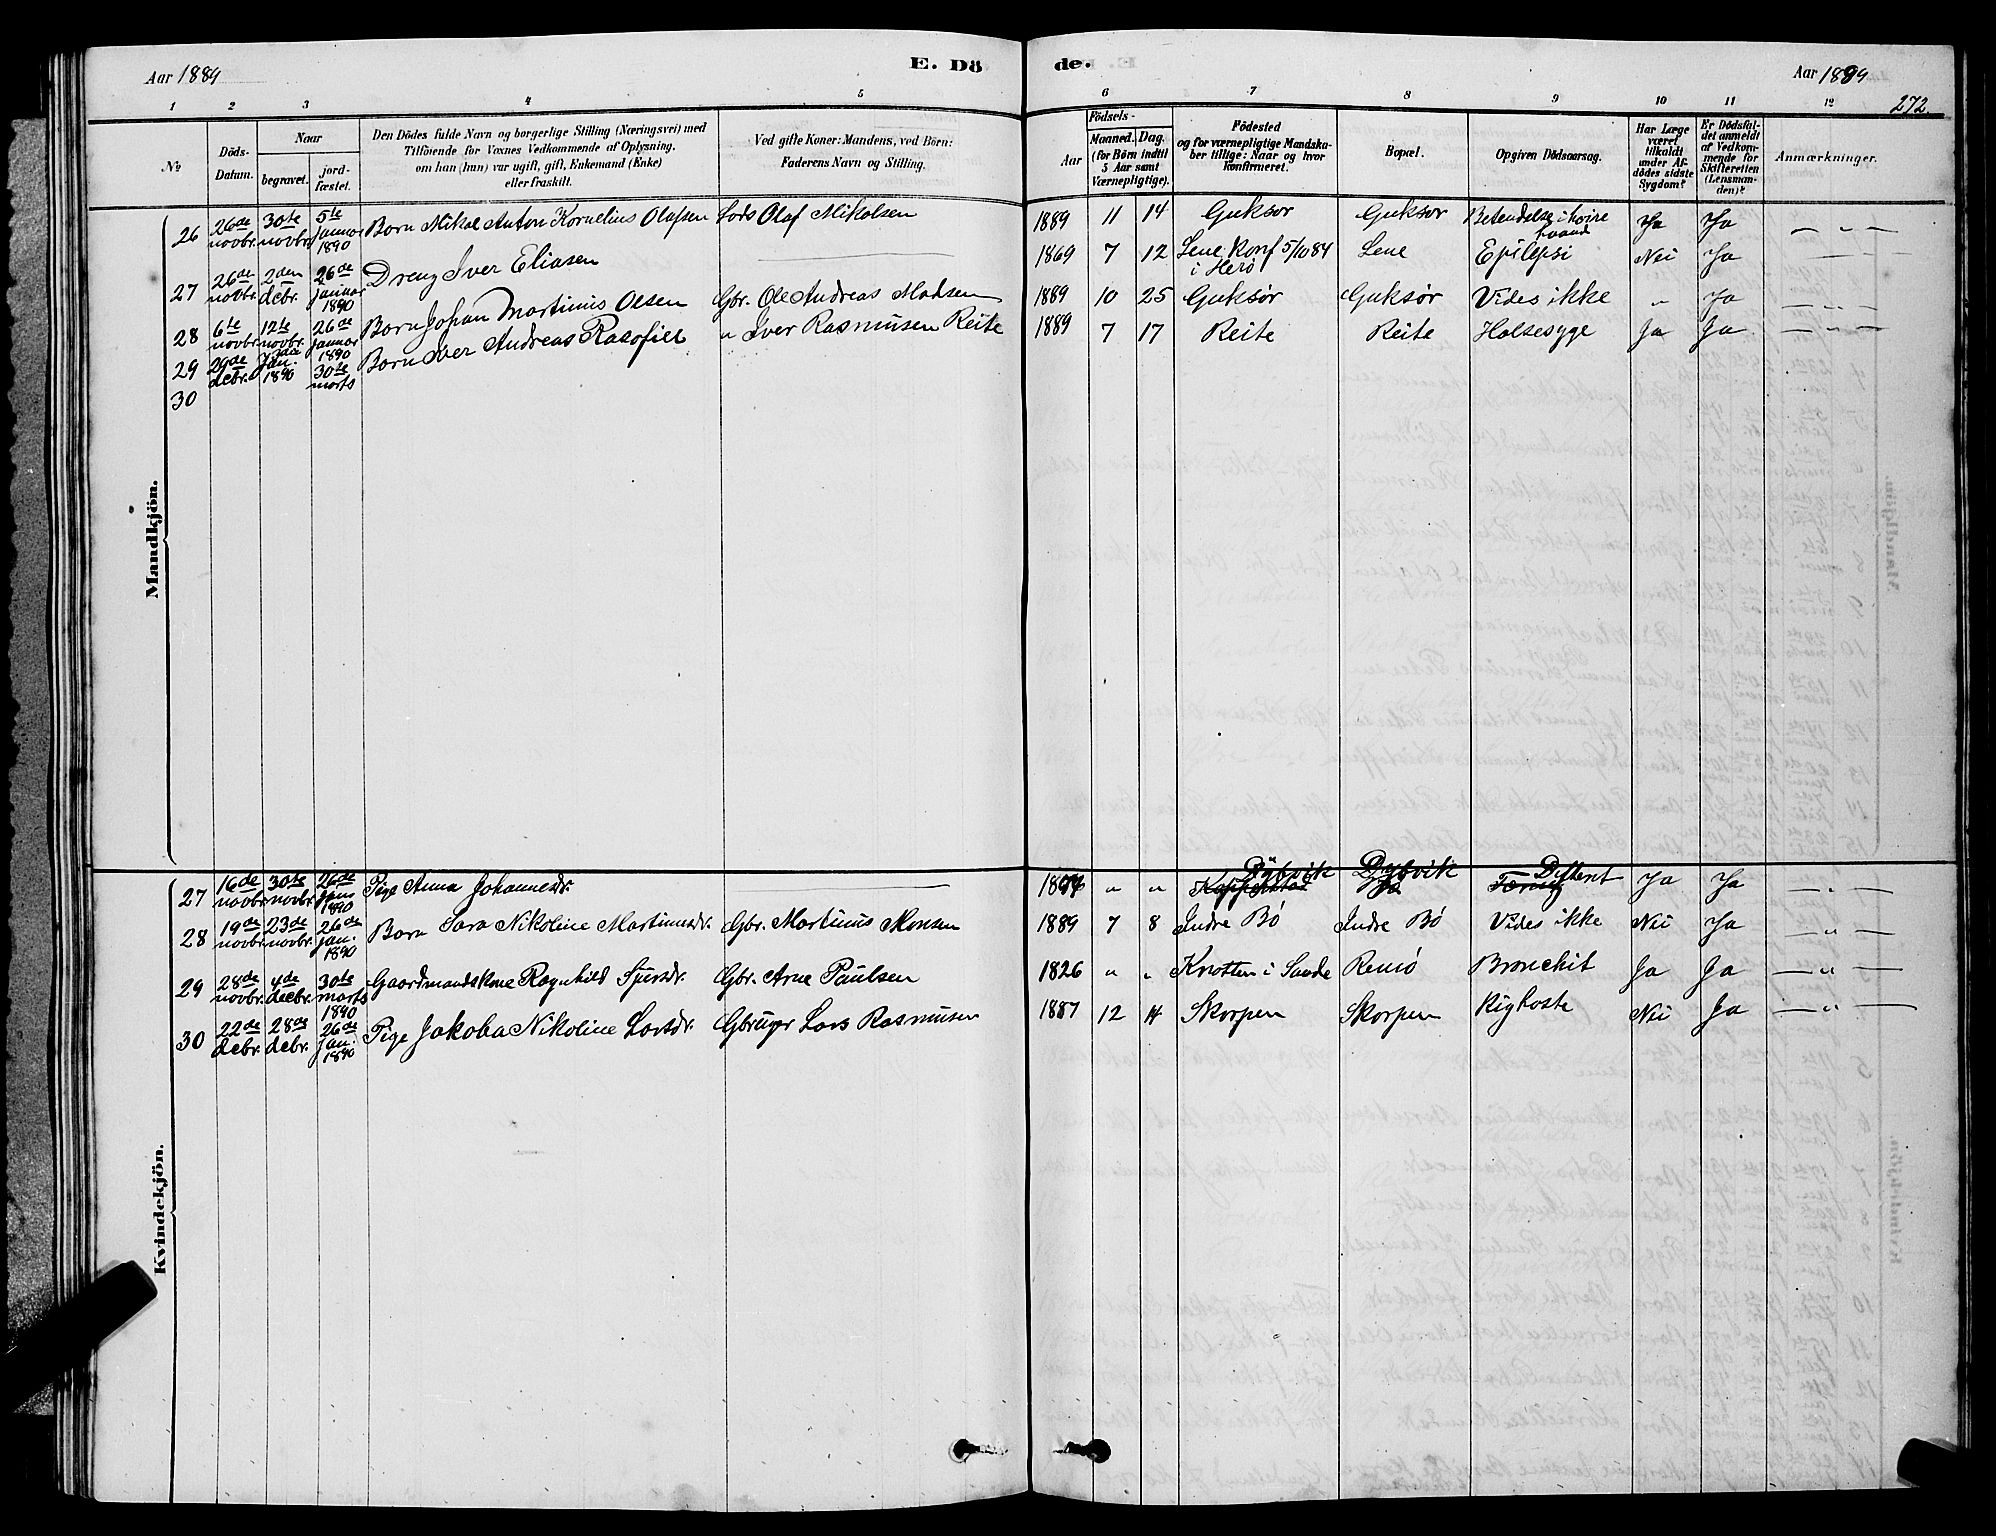 Aar 1889
E. Dö
de.
Aar 1889
272.
1 2 3 4 5 6 7 8 9 10 11 12
No
Döds-Datum.
Naar
begravet.
jord-fæstet.
Den Dödes fulde Navn og borgerlige Stilling (Næringsvei) med
Tilföiende for Voxnes Vedkommende af Oplysning.
om han (hun) var ugift, gift, Enkemand (Enke)
eller fraskilt.
Ved gifte Koner: Mandens, ved Börn:
Faderens Navn og Stilling.
Födsels-
Aar
Maaned. Dag.
(for Börn indtil
5 Aar samt
Værnepligtige).
Födested
og for værnepligtige Mandska-
ber tillige: Naar og hvor
konfirmeret.
Bopæl.
Opgiven Dödsaarsag.
Har Læge
været
tilkaldt
under Af-
dödes sidste
Sygdom?
Er Dödsfal-
det anmeldt
af Vedkom-
mende for
Skifteretten
(Lensman-
den)?
Anmærkninger.
Mandkjön.
26 26de novbr. 30te novbr. 5te januar 1890 Barn Mikal Anton Kornelius Olafsen Lods Olaf Mikalsen 1889 11 14 Guksør Guksør Betendelse i høire haand Ja Ja — „ —
27 26de novbr. 2den debr. 26de januar 1890 Dreng Iver Eliasen — 1869 7 12 Lene konf 5/10 84 i Herø Lene Epilepsi Nei Ja — „ —
28 6te novbr. 12te novbr. 26de januar 1890 Barn Johan Martinius Olsen Gbr. Ole Andreas Madsen 1889 10 25 Guksør Guksør Vides ikke „ Ja — „ —
29 29de debr. jan. 1890 30te marts Barn Iver Andreas „ Iver Rasmusen Reite 1889 7 17 Reite Reite Halsesyge Ja Ja — „ —
30
Kvindekjön.
27 16de novbr. 30te novbr. 26de jan. 1890 Pige Anna Johannesdr. — „ „ Dybvik Dybvik Ja Ja — „ —
28 19de novbr. 23de novbr. 26de jan. 1890 Barn Sara Nikoline Martinusdr. Gbr. Martinus Monsen 1889 7 8 Indre Bø Indre Bø Vides ikke Nei Ja — „ —
29 28de novbr. 4de decbr. 30te marts 1890 Gaardmandskone Ragnhild Sjursdr. Gbr. Arne Paulsen 1826 „ „ Knotten i Sande Remø Bronchit Ja Ja — „ —
30 22de debr. 28de debr. 26de jan. 1890 Pige Jakoba Nikoline Larsdr. Gbruger Lars Rasmusen 1887 12 14 Skorpen Skorpen Kighoste Nei Ja — „ —